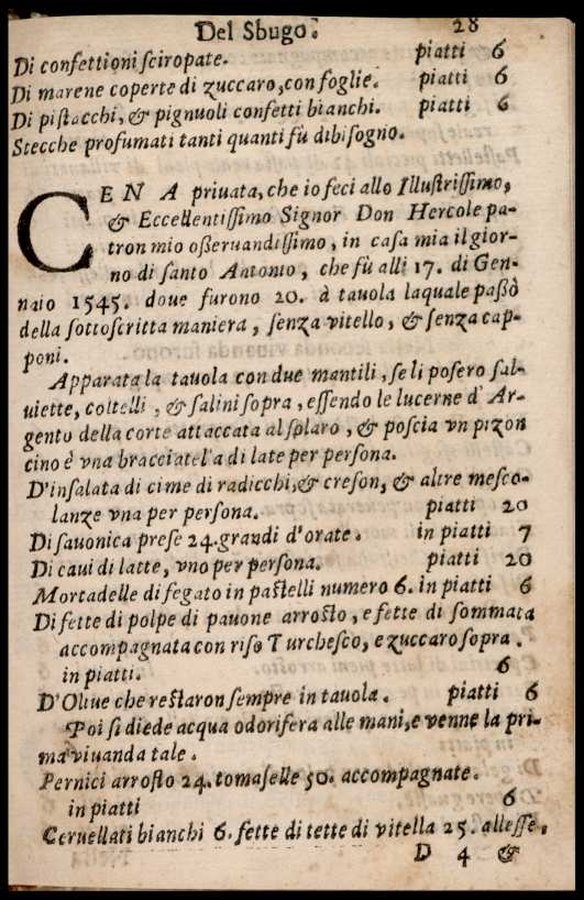 Del Sbugo. 28
Di confettioni sciropate. piatti 6
Di marene coperte di zuccaro, con foglie. piatti 6
Di pistacchi, & pignuoli confetti bianchi. piatti 6
Stecche profumati tanti quanti fù dibisogno.
CENA priuata, che io feci allo Illustrissimo,
& Eccellentissimo Signor Don Hercole pa-
tron mio osseruandissimo, in casa mia il gior-
no di santo Antonio, che fù alli 17. di Gen-
naio 1545. doue furono 20. à tauola laquale passò
della sottoscritta maniera, senza vitello, & senza cap-
poni.
Apparata la tauola con due mantili, se li posero sal-
uiette, coltelli, & salini sopra, essendo le lucerne d'Ar-
gento della corte attaccata al solaro, & poscia vn pizon
cino è vna bracciatel'a di late per persona.
D'insalata di cime di radicchi, & creson, & altre mesco-
lanze vna per persona. piatti 20
Di sauonica prese 24. grandi d'orate. in piatti 7
Di caui di latte, vno per persona. piatti 20
Mortadelle di fegato in pastelli numero 6. in piatti 6
Di fette di polpe di pauone arrosto, e fette di sommata
accompagnata con riso Turchesco, e zuccaro sopra.
in piatti. 6
D'Oliue che restaron sempre in tauola. piatti 6
Poi si diede acqua odorifera alle mani, e venne la pri-
ma viuanda tale.
Pernici arrosto 24. tomaselle 50. accompagnate.
in piatti 6
Ceruellati bianchi 6. fette di tette di vitella 25. allesse,
D 4 &